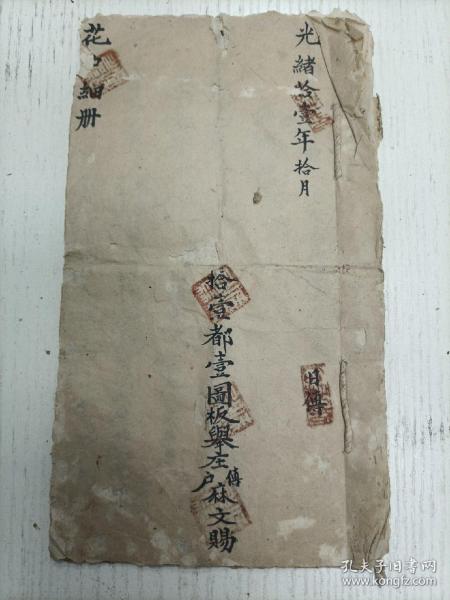 光緒拾壹年拾月
日傳
拾壹都壹圖板輿庄傳户麻文賜
花户細册
孔夫子旧书网
www.kongfz.com